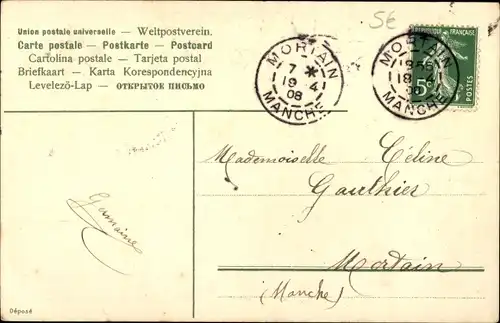 Union postale universelle — Weltpostverein.
Carte postale — Postkarte — Postcard
Cartolina postale — Tarjeta postal
Briefkaart — Karta Korespondencyjna
Levelező-Lap — ОТКРЫТОЕ ПИСЬМО
5€
MORTAIN
7 *
19 4
08
MANCHE
MORTAIN
18
08
MANCHE
5c
POSTES
Mademoiselle Céline
Gauthier
Mortain
(Manche)
Germaine
Déposé